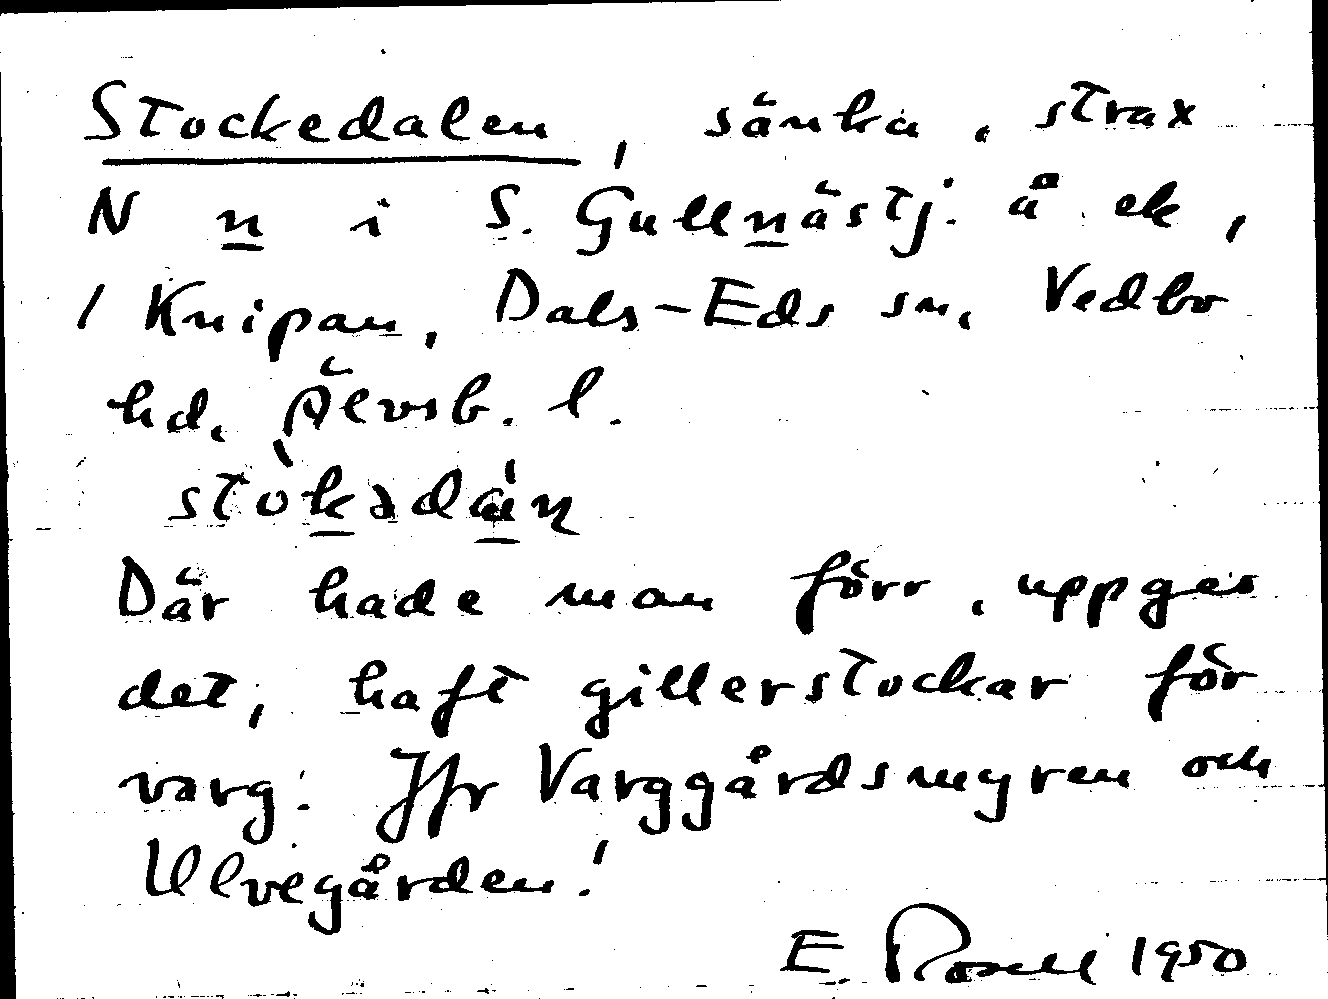 Stockedalen, sänka, strax
N n i S. Gullnästj. å ek,
/ Knipan, Dals-Eds sn, Vedbo
hd, Älvsb. l.
stòkədán
Där hade man förr, uppges
det, haft gillerstockar för
varg. Jfr Varggårdsmyren och
Ulvegården!
E. Rosell 1950